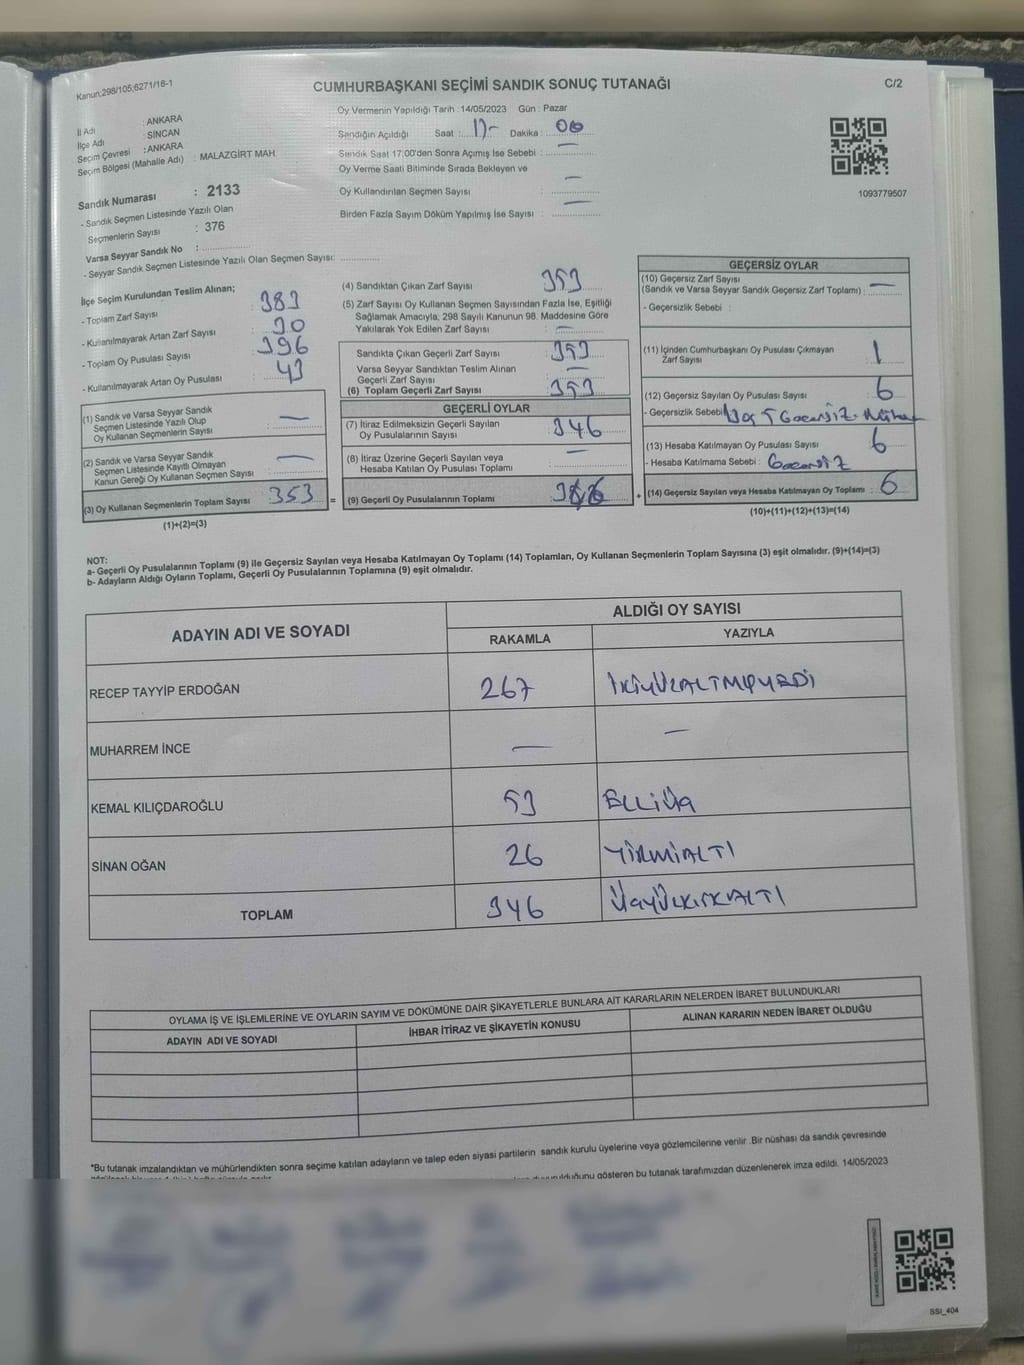 Kanun;298/105;6271/16-1
CUMHURBAŞKANI SEÇİMİ SANDIK SONUÇ TUTANAĞI
C/2
İl Adı : ANKARA
İlçe Adı : SİNCAN
Seçim Çevresi : ANKARA
Seçim Bölgesi (Mahalle Adı) : MALAZGİRT MAH.
Sandık Numarası : 2133
- Sandık Seçmen Listesinde Yazılı Olan
Seçmenlerin Sayısı : 376
Varsa Seyyar Sandık No :
- Seyyar Sandık Seçmen Listesinde Yazılı Olan Seçmen Sayısı:
Oy Vermenin Yapıldığı Tarih :14/05/2023 Gün : Pazar
Sandığın Açıldığı Saat : 17- Dakika : 00
Sandık Saat 17:00'den Sonra Açımış İse Sebebi : —
Oy Verme Saati Bitiminde Sırada Bekleyen ve
Oy Kullandırılan Seçmen Sayısı : —
Birden Fazla Sayım Döküm Yapılmış İse Sayısı : —
1093779507
İlçe Seçim Kurulundan Teslim Alınan;
- Toplam Zarf Sayısı : 383
- Kullanılmayarak Artan Zarf Sayısı : 30
- Toplam Oy Pusulası Sayısı : 396
- Kullanılmayarak Artan Oy Pusulası : 43
(1) Sandık ve Varsa Seyyar Sandık
Seçmen Listesinde Yazılı Olup
Oy Kullanan Seçmenlerin Sayısı : —
(2) Sandık ve Varsa Seyyar Sandık
Seçmen Listesinde Kayıtlı Olmayan
Kanun Gereği Oy Kullanan Seçmen Sayısı : —
(3) Oy Kullanan Seçmenlerin Toplam Sayısı : 353 =
(1)+(2)=(3)
(4) Sandıktan Çıkan Zarf Sayısı : 353
(5) Zarf Sayısı Oy Kullanan Seçmen Sayısından Fazla İse, Eşitliği
Sağlamak Amacıyla; 298 Sayılı Kanunun 98. Maddesine Göre
Yakılarak Yok Edilen Zarf Sayısı : —
Sandıkta Çıkan Geçerli Zarf Sayısı : 353
Varsa Seyyar Sandıktan Teslim Alınan
Geçerli Zarf Sayısı : —
(6) Toplam Geçerli Zarf Sayısı : 353
GEÇERLİ OYLAR
(7) İtiraz Edilmeksizin Geçerli Sayılan
Oy Pusulalarının Sayısı : 346
(8) İtiraz Üzerine Geçerli Sayılan veya
Hesaba Katılan Oy Pusulası Toplamı : —
(9) Geçerli Oy Pusulalarının Toplamı : 346 +
GEÇERSİZ OYLAR
(10) Geçersiz Zarf Sayısı
(Sandık ve Varsa Seyyar Sandık Geçersiz Zarf Toplamı) : —
- Geçersizlik Sebebi :
(11) İçinden Cumhurbaşkanı Oy Pusulası Çıkmayan
Zarf Sayısı : 1
(12) Geçersiz Sayılan Oy Pusulası Sayısı : 6
- Geçersizlik Sebebi
(13) Hesaba Katılmayan Oy Pusulası Sayısı : 6
- Hesaba Katılmama Sebebi : Geçersiz
(14) Geçersiz Sayılan veya Hesaba Katılmayan Oy Toplamı : 6
(10)+(11)+(12)+(13)=(14)
NOT:
a- Geçerli Oy Pusulalarının Toplamı (9) ile Geçersiz Sayılan veya Hesaba Katılmayan Oy Toplamı (14) Toplamları, Oy Kullanan Seçmenlerin Toplam Sayısına (3) eşit olmalıdır. (9)+(14)=(3)
b- Adayların Aldığı Oyların Toplamı, Geçerli Oy Pusulalarının Toplamına (9) eşit olmalıdır.
ADAYIN ADI VE SOYADI
ALDIĞI OY SAYISI
RAKAMLA YAZIYLA
RECEP TAYYİP ERDOĞAN 267 İKİYÜZALTMIŞYEDİ
MUHARREM İNCE — —
KEMAL KILIÇDAROĞLU 53 ELLİÜÇ
SİNAN OĞAN 26 YİRMİALTI
TOPLAM 346 ÜÇYÜZKIRKALTI
OYLAMA İŞ VE İŞLEMLERİNE VE OYLARIN SAYIM VE DÖKÜMÜNE DAİR ŞİKAYETLERLE BUNLARA AİT KARARLARIN NELERDEN İBARET BULUNDUKLARI
ADAYIN ADI VE SOYADI İHBAR İTİRAZ VE ŞİKAYETİN KONUSU ALINAN KARARIN NEDEN İBARET OLDUĞU
*Bu tutanak imzalandıktan ve mühürlendikten sonra seçime katılan adayların ve talep eden siyasi partilerin sandık kurulu üyelerine veya gözlemcilerine verilir .Bir nüshası da sandık çevresinde
gösteren bu tutanak tarafımızdan düzenlenerek imza edildi. 14/05/2023
SSI_404